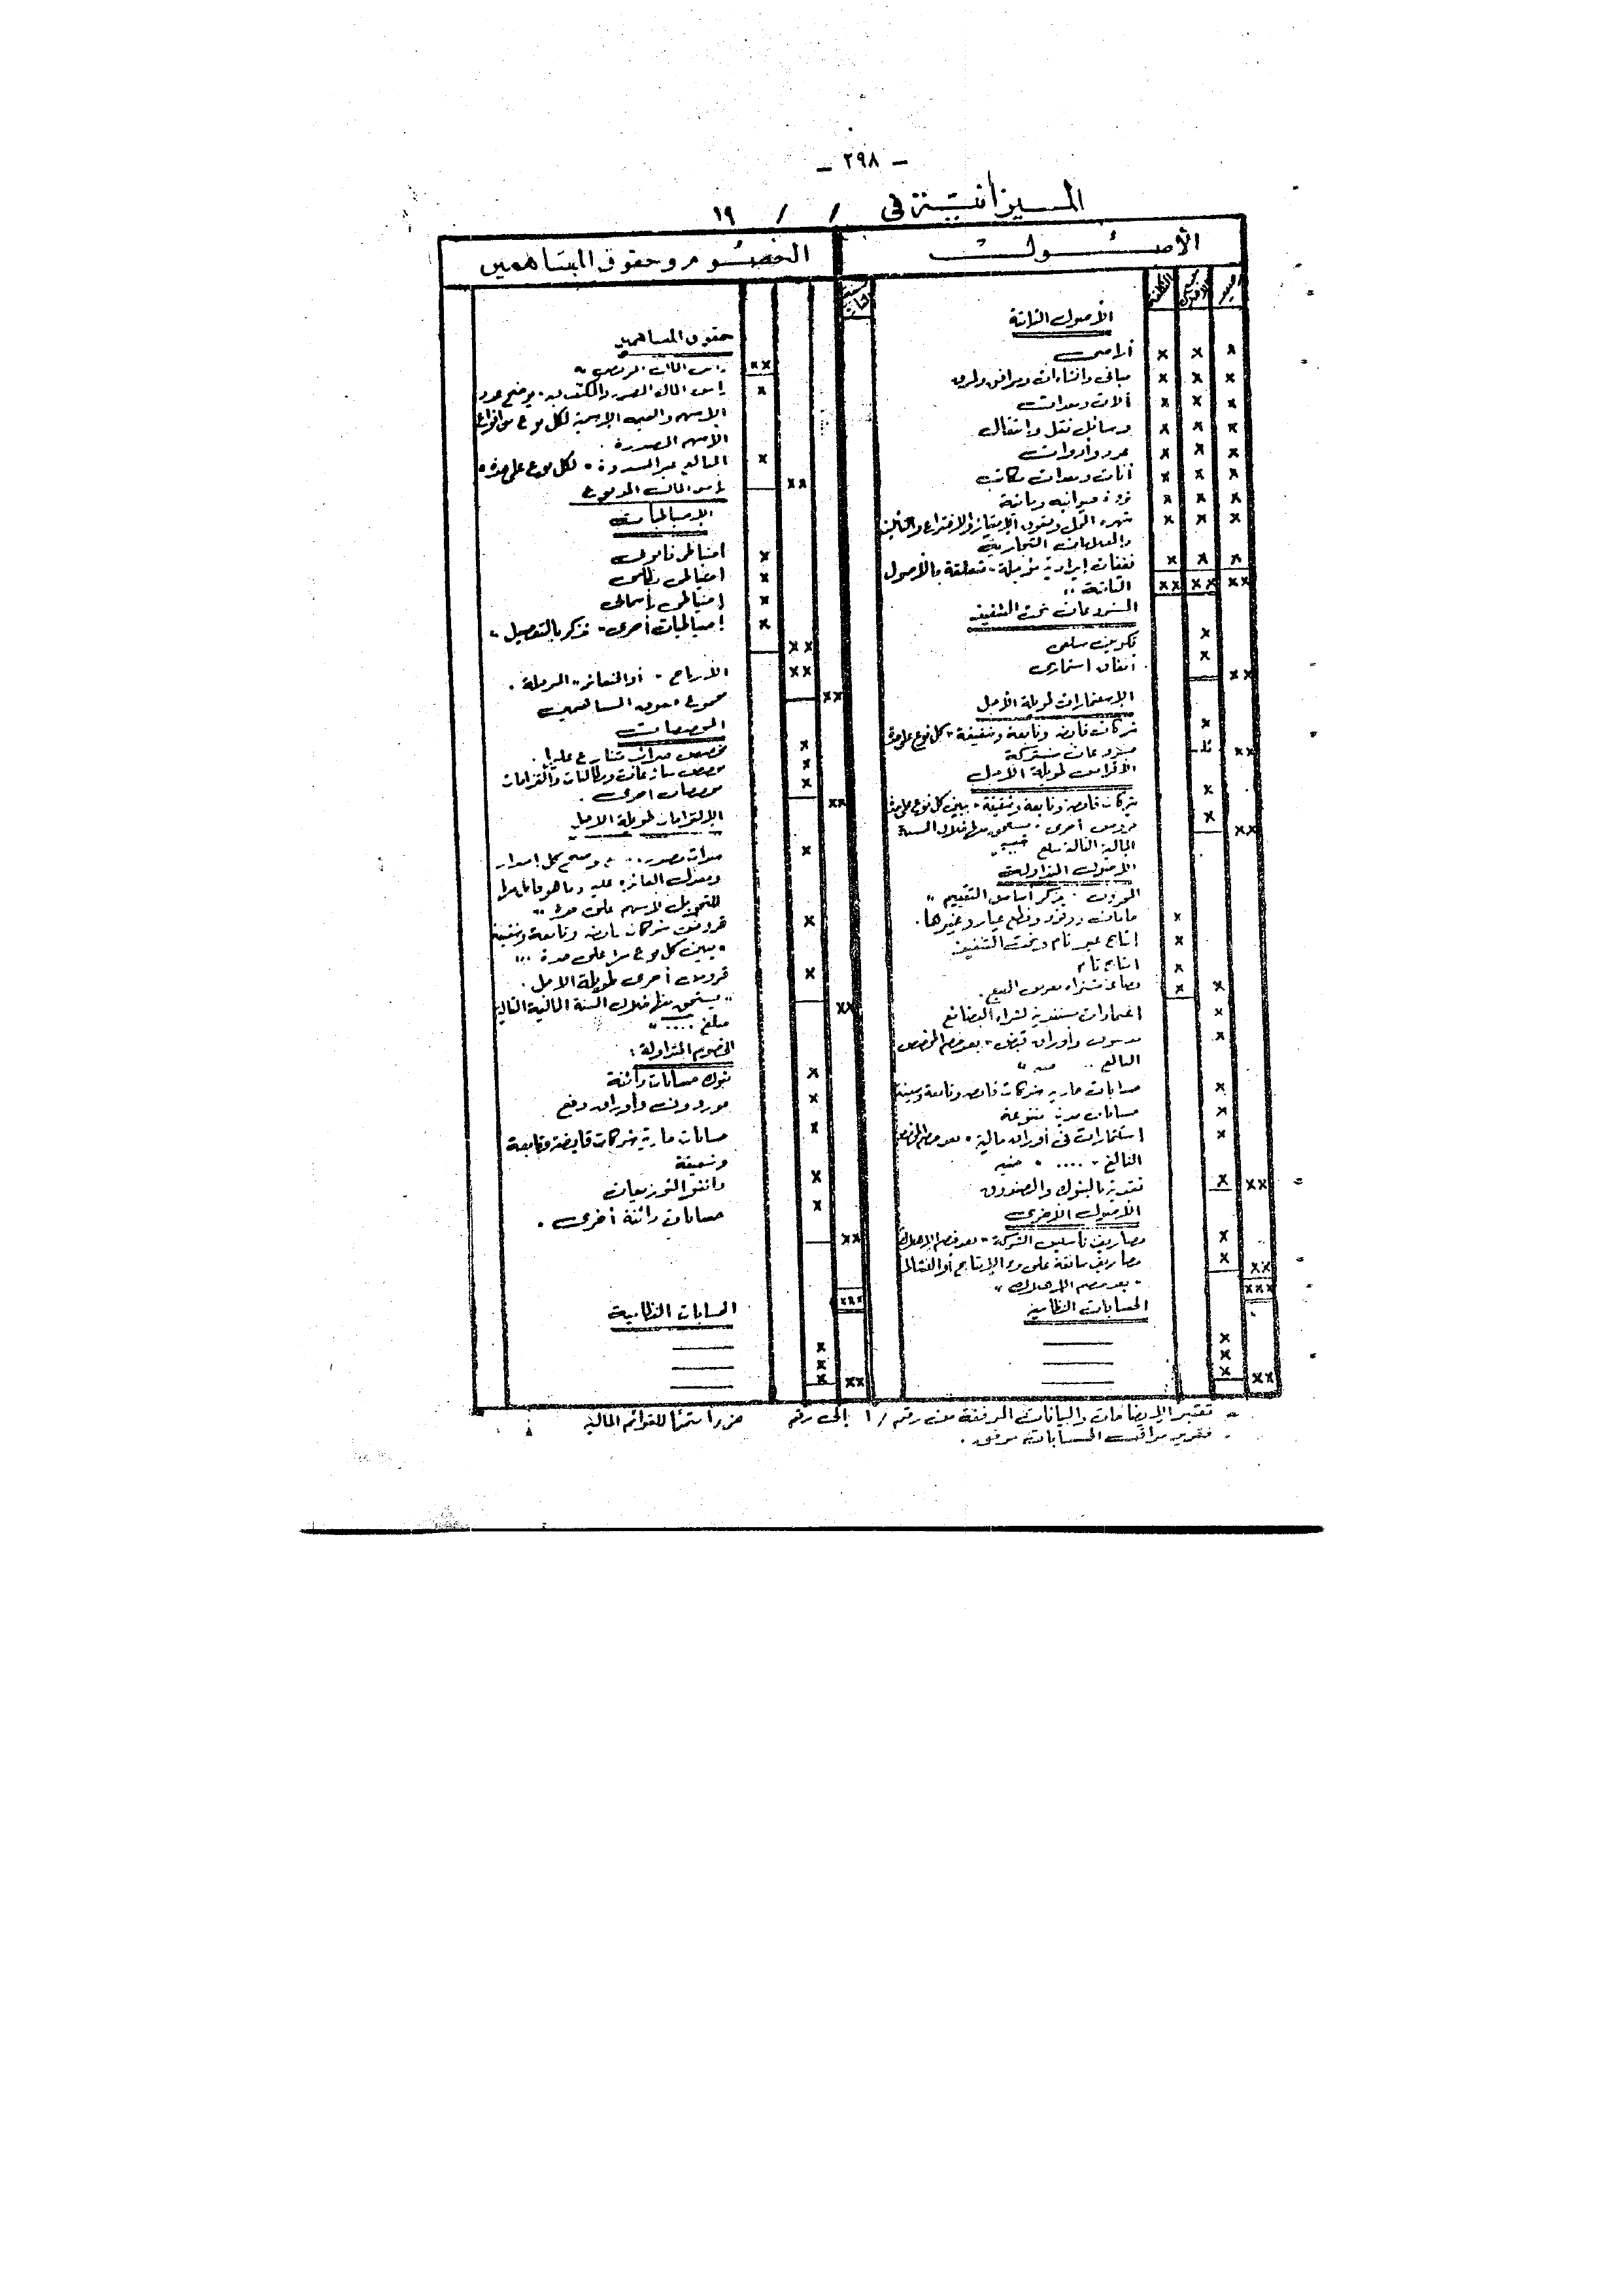 - ٢٩٨ -
الميزانية في / / ١٩
الأصول
الخصوم وحقوق المساهمين
التكلفة
الأصول الثابتة
أراضي × × ×
مباني وانشاءات ومرافق وطرق × × ×
آلات ومعدات × × ×
وسائل نقل وانتقال × × ×
عدد وأدوات × × ×
أثاث ومعدات مكاتب × × ×
ثروة حيوانية ومائية × × ×
شهرة المحل وحقوق الامتياز والاختراع والتأليف × × ×
والعلامات التجارية
نفقات إيرادية مؤجلة " متعلقة بالأصول × × ×
الثابتة " ×× ×× ××
المشروعات تحت التنفيذ
تكوين سلعى ×
انفاق استثمارى ×
××
الاستثمارات طويلة الأجل
شركات قابضة وتابعة وشقيقة " كل نوع على حدة ×
مشروعات مشتركة ××
الاقراض طويلة الأجل
شركات قابضة وتابعة وشقيقة " يبين كل نوع على حدة ×
قروض أخرى " يستحق منها خلال السنة × ××
المالية التالية مبلغ جنيه "
الأصول المتداولة
المخزون " يذكر أساس التقييم "
خامات ووقود وقطع غيار وغيرها . ×
انتاج غير تام وتحت التنفيذ ×
انتاج تام ×
بضاعة مشتراه بغرض البيع . × ×
اعتمادات مستندية لشراء البضائع ×
مدينون وأوراق قبض " بعد خصم المخصص ×
البالغ .. جنيه "
حسابات جارية شركات قابضة وتابعة وشقيقة ×
حسابات مدينة متنوعة ×
استثمارات فى أوراق مالية " بعد خصم المخصص ×
البالغ " .... " جنيه
نقدية بالبنوك والصندوق × ××
الأصول الأخرى
مصاريف تأسيس الشركة " بعد خصم الإهلاك ×
مصاريف سابقة على بدء الإنتاج أو التشغيل × ××
" بعد خصم الإهلاك " ×××
الحسابات النظامية
×
×
× ××
حقوق المساهمين
رأس المال المرخص به ××
رأس المال المصدر والمكتتب به " يوضح عدد ×
الاسهم والقيمة الاسمية لكل نوع من أنواع
الاسهم المصدرة .
المبالغ غير المسددة " لكل نوع على حدة " ×
رأس المال المدفوع ××
الاحتياطيات
احتياطى قانونى ×
احتياطى نظامى ×
احتياطى رأسمالى ×
احتياطيات أخرى " تذكر بالتفصيل " ×
××
الأرباح " أو الخسائر " المرحلة . ××
مجموع حقوق المساهمين ××
المخصصات
مخصص ضرائب متنازع عليها . ×
مخصص منازعات ومطالبات والتزامات ×
مخصصات أخرى . ×
××
الالتزامات طويلة الاجل
سندات مصدرة .. " ويوضح كل إصدار ×
ومعدل الفائدة عليه وما هو قابل منها
للتحويل لاسهم على حدة "
قروض شركات قابضة وتابعة وشقيقة ×
" يبين كل نوع منها على حدة "
قروض أخرى طويلة الاجل . ×
" يستحق منها خلال السنة المالية التالية ××
مبلغ .... "
الخصوم المتداولة :
بنوك حسابات دائنة ×
موردون وأوراق دفع ×
حسابات جارية شركات قابضة وتابعة ×
وشقيقة
دائنو التوزيعات ×
حسابات دائنة أخرى . ×
××
×××
الحسابات النظامية
×
×
× ××
- تعتبر الايضاحات والبيانات المرفقة من رقم / ١ إلى رقم جزءا متمما للقوائم المالية
- تقرير مراقب الحسابات مرفق .